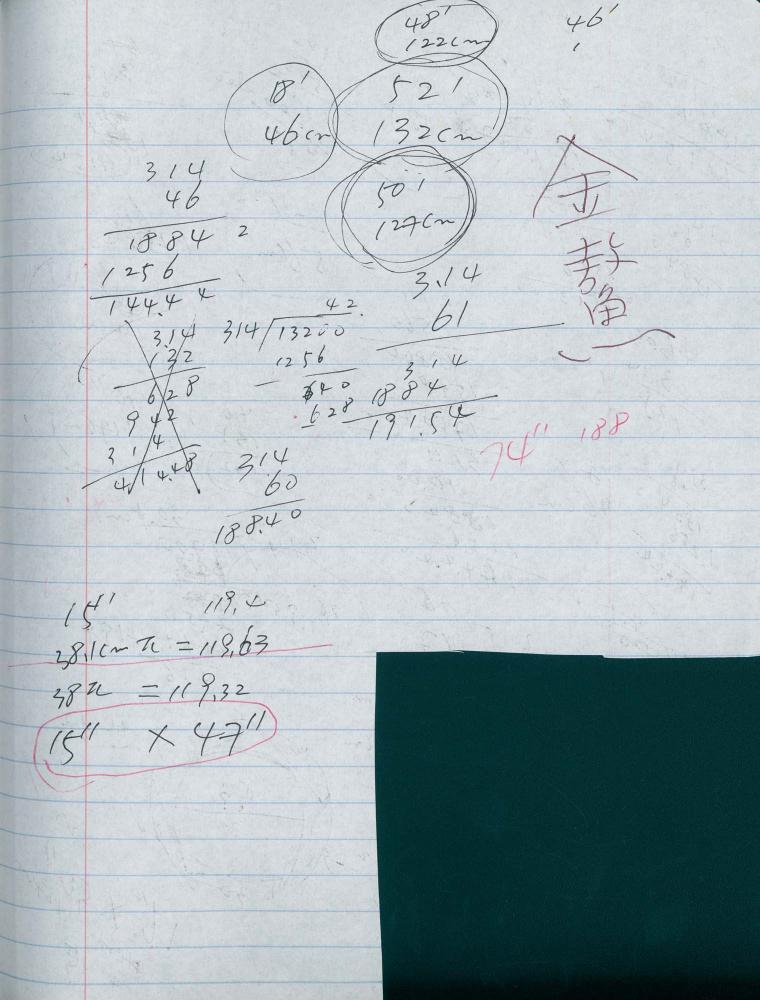 48'
122cm
46'
18'
46cm
52'
132cm
50'
127cm
金
鰲
314
46
1884 2
1256
144.4 4
3.14
132
628
942
314
414.48
42.
314 13200
1256
640
628
3.14
61
3 1 4
1884
191.54
74" 188
314
60
188.40
15" 119.4
38.1cm π = 119.63
38π = 119.32
15" × 47"